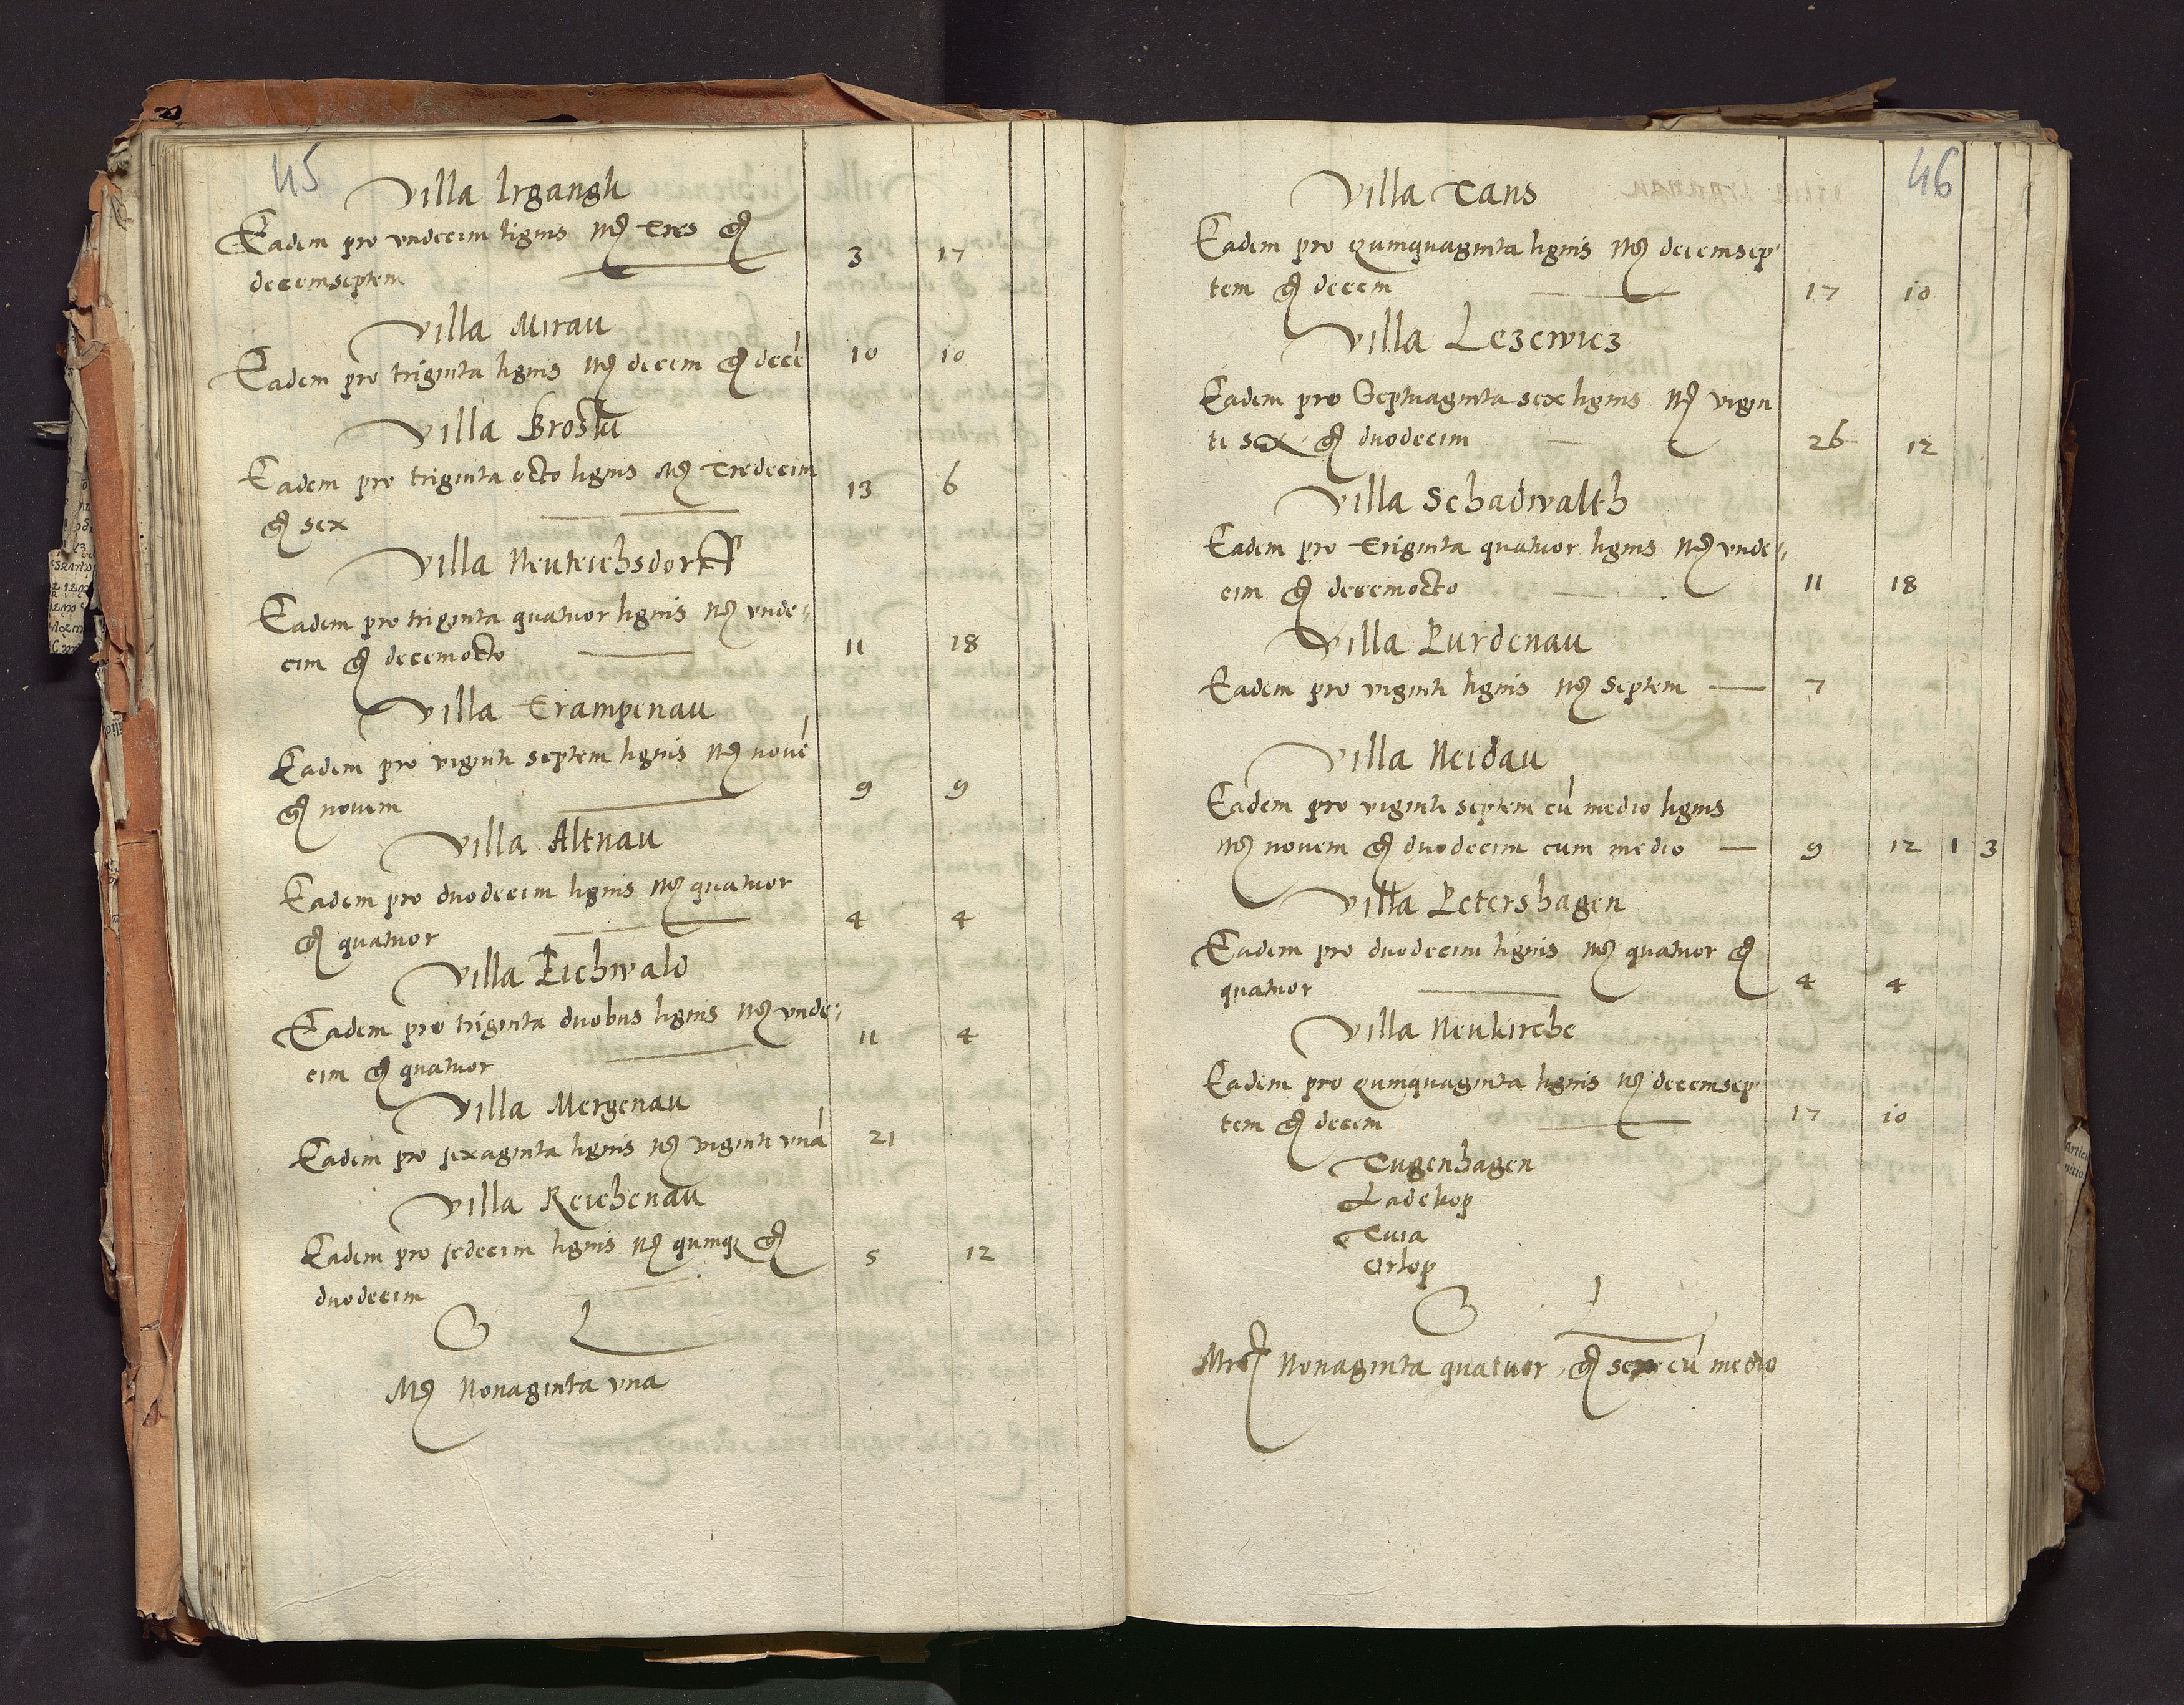 45
Villa Irgangh
Eadem pro vndecim lignis Mꝫ Tres gꝫ
decemseptem 3 17
Villa Mirau
Eadem pro triginta lignis Mꝫ decem gꝫ decē 10 10
Villa Broska
Eadem pro triginta octo lignis Mꝫ Tredecim
gꝫ sex 13 6
Villa Neuteichsdorff
Eadem pro triginta quatuor lignis Mꝫ vnde-
cim gꝫ decemocto 11 18
Villa Trampenau
Eadem pro viginti septem lignis Mꝫ novē
gꝫ novem 9 9
Villa Altnau
Eadem pro duodecim lignis Mꝫ quatuor
gꝫ quatuor 4 4
Villa Eichwald
Eadem pro triginta duobus lignis Mꝫ vnde-
cim gꝫ quatuor 11 4
Villa Mergenau
Eadem pro sexaginta lignis Mꝫ viginti vnā 21
Villa Reichenau
Eadem pro sedecim lignis Mꝫ quinqꝫ gꝫ
duodecim 5 12
Mꝫ Nonaginta vna
46
Villa Tans
Eadem pro Quinquaginta lignis Mꝫ decemsep
tem gꝫ decem 17 10
Villa Lezewicz
Eadem pro Septuaginta sex lignis Mꝫ vigin
ti sex gꝫ duodecim 26 12
Villa Schadwalth
Eadem pro Triginta quatuor lignis Mꝫ vnde-
cim gꝫ decemocto 11 18
Villa Purdenau
Eadem pro viginti lignis Mꝫ septem 7
Villa Neidau
Eadem pro viginti septem cū medio lignis
Mꝫ novem gꝫ duodecim cum medio 9 12 1 3
Villa Petershagen
Eadem pro duodecim lignis Mꝫ quatuor gꝫ
quatuor 4 4
Villa Neukirche
Eadem pro Quinquaginta lignis Mꝫ decemsep
tem gꝫ decem 17 10
Tugenhagen
Ladekop
Tuia
Orlop
Mrcꝫ Nonaginta quatuor gꝫ sex cū medio